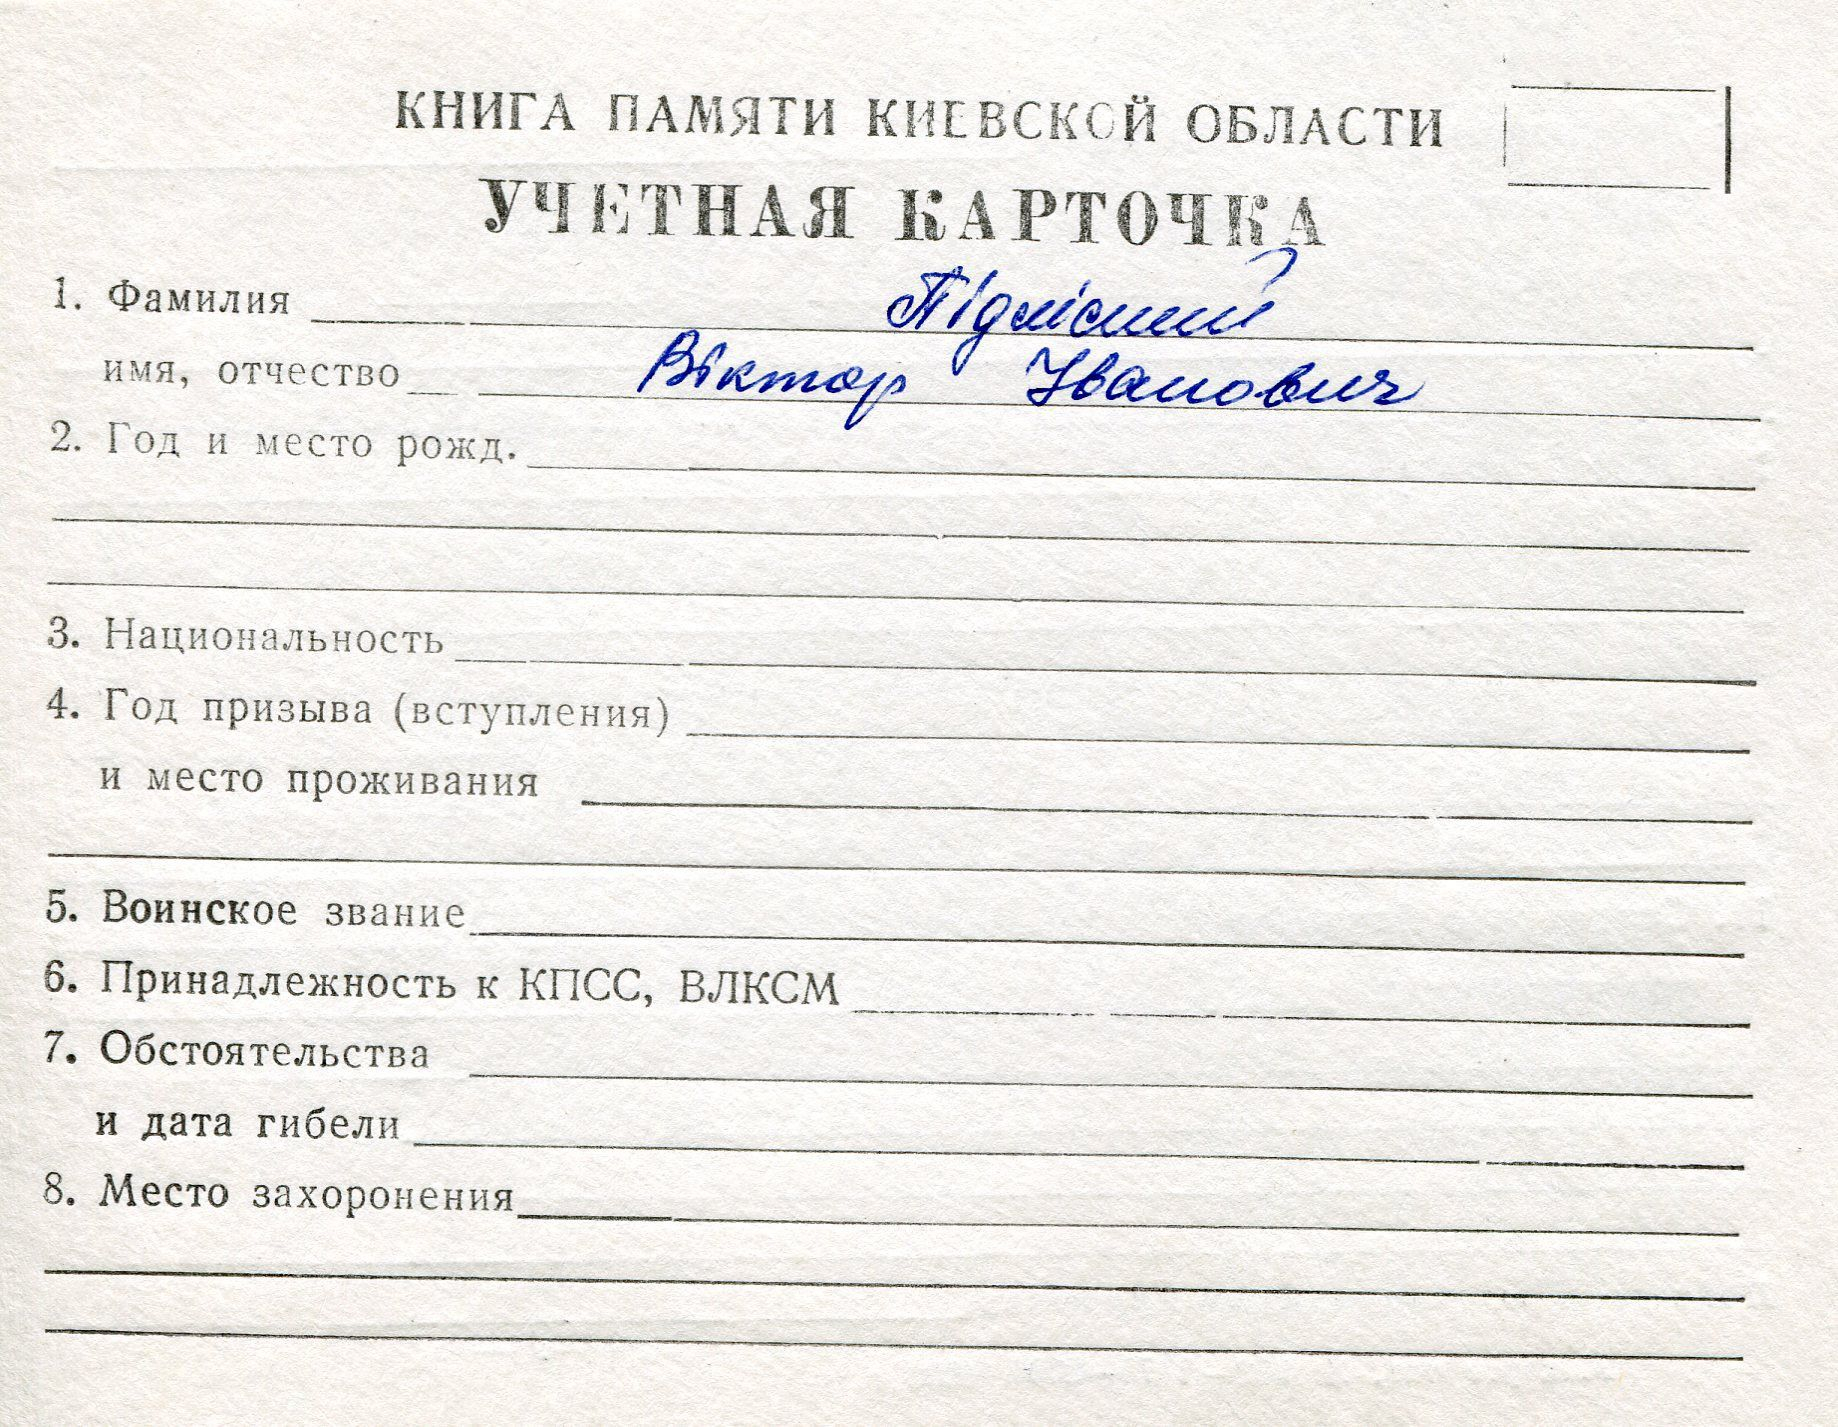 КНИГА ПАМЯТИ КИЕВСКОЙ ОБЛАСТИ
УЧЕТНАЯ КАРТОЧКА
1. Фамилия Підлісний
имя, отчество Віктор Іванович
2. Год и место рожд.
3. Национальность
4. Год призыва (вступления)
и место проживания
5. Воинское звание
6. Принадлежность к КПСС, ВЛКСМ
7. Обстоятельства
и дата гибели
8. Место захоронения